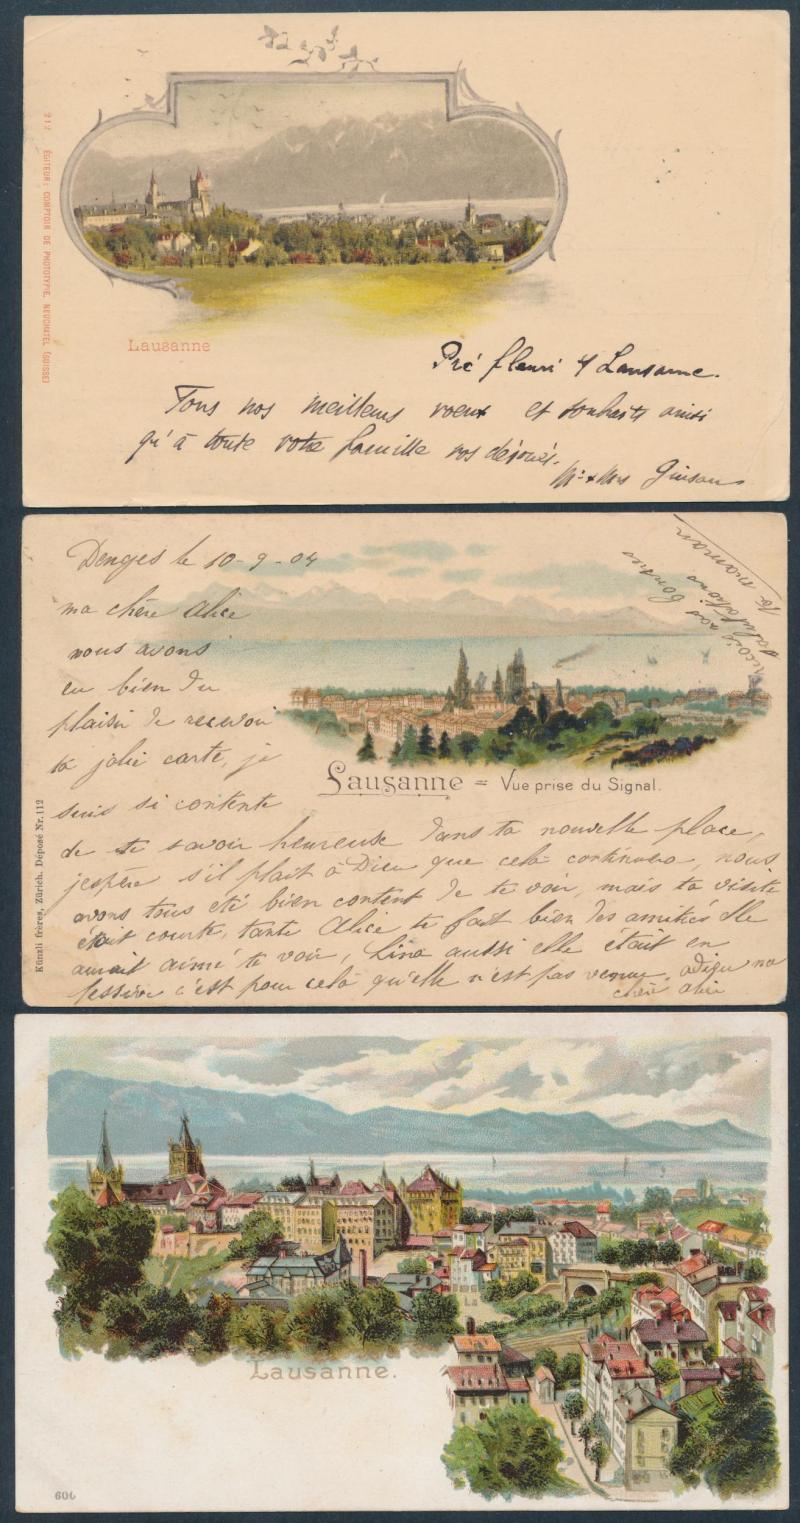 212 ÉDITEUR: COMPTOIR DE PHOTOTYPIE, NEUCHATEL (SUISSE)
Lausanne
Pré fleuri s/ Lausanne.
Tous nos meilleurs voeux et souhaits ainsi
qu'à toute votre famille vos dévoués.
Mr & Mrs
Denges le 10-9-04
ma chère Alice
nous avons
eu bien du
plaisir de recevoir
ta jolie carte, je
suis si contente
de te savoir heureuse dans ta nouvelle place,
jespère s'il plait à Dieu que celà continuera, nous
avons tous eté bien content de te voir, mais ta visite
était courte, tante Alice te fait bien des amitiés Elle
aurait aimé te voir, Lina aussi elle était en
lessive c'est pour celà qu'elle n'est pas venue. adieu ma
chère alice
reçois nos bonnes
salutations
Ta maman
Lausanne = Vue prise du Signal.
Künzli frères, Zürich. Déposé Nr. 112
Lausanne.
606